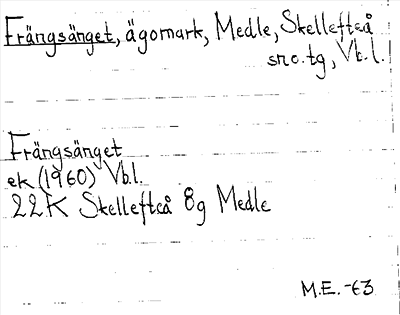 Frängsänget, ägomark, Medle, Skellefteå
sno.tg, Vb.l.
Frängsänget
ek (1960) Vb.l.
22K Skellefteå 8g Medle
M.E. -63